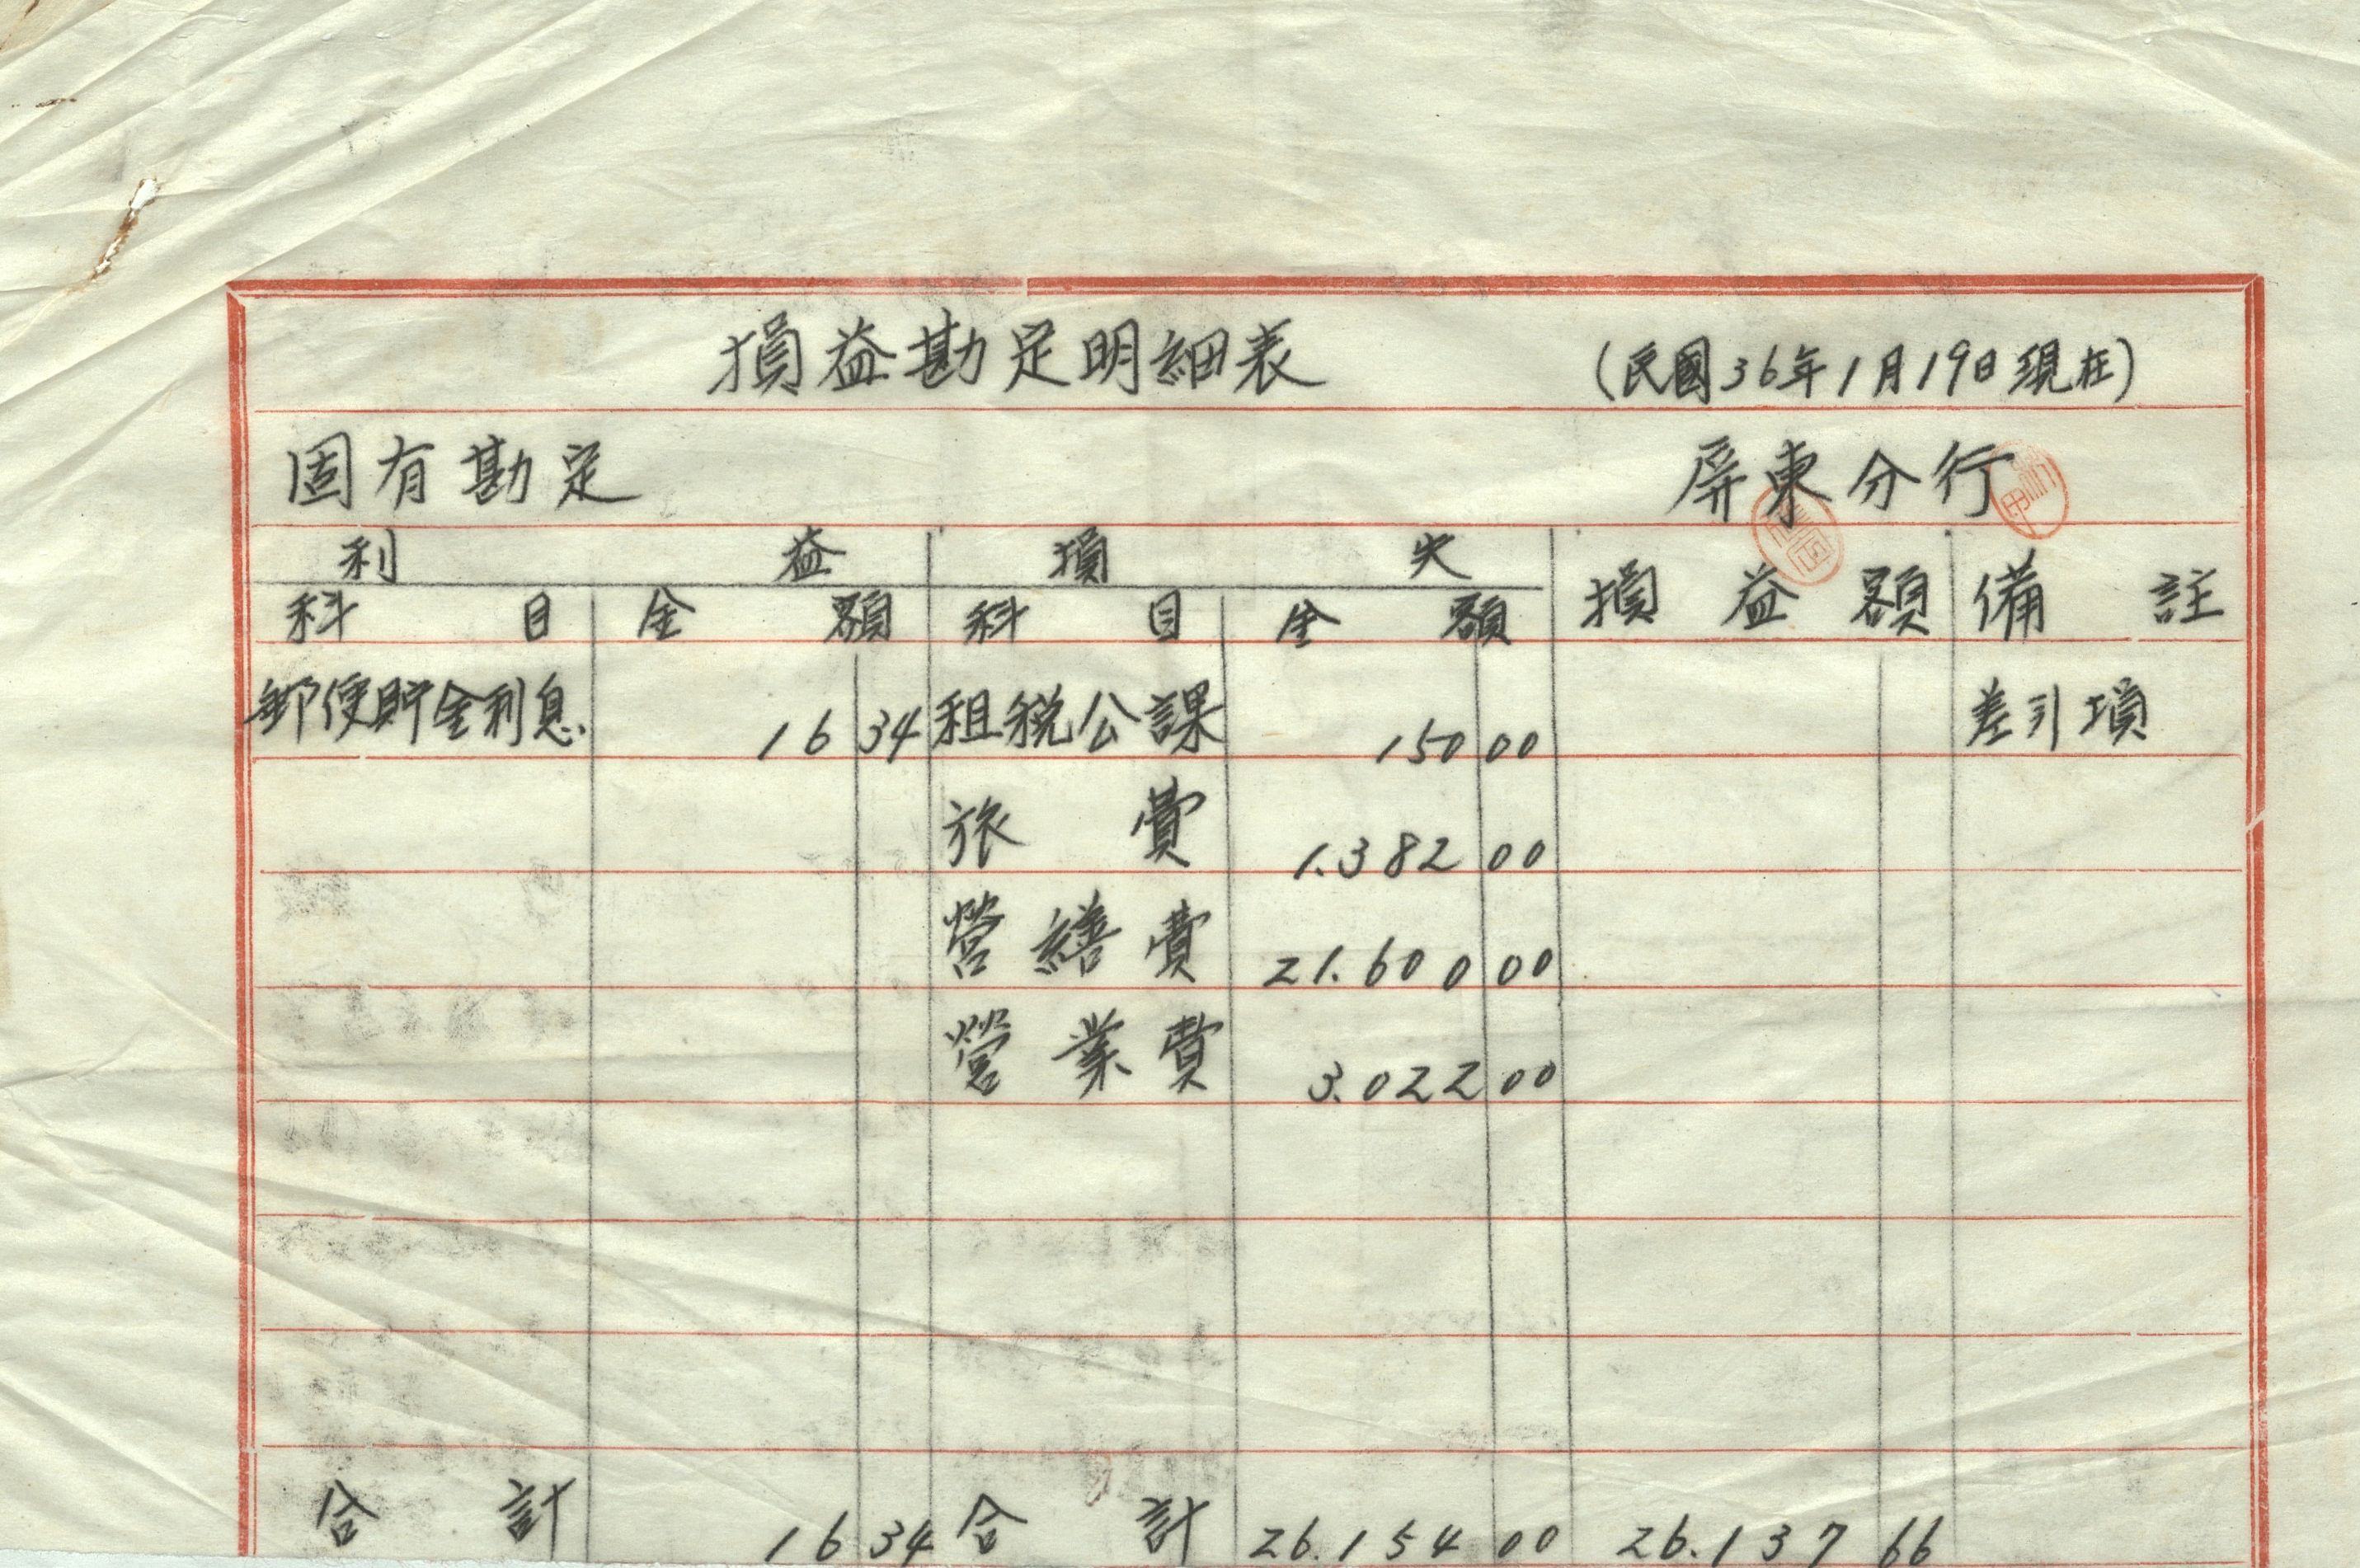 損益勘定明細表 (民國36年1月19日現在)
固有勘定 屏東分行
利益 損失 損益額 備註
科目 金額 科目 金額
郵便貯金利息 16 34 租税公課 150 00 差引損
旅費 1.382 00
營繕費 21.600 00
營業費 3.022 00
合計 16 34 合計 26.154 00 26.137 66